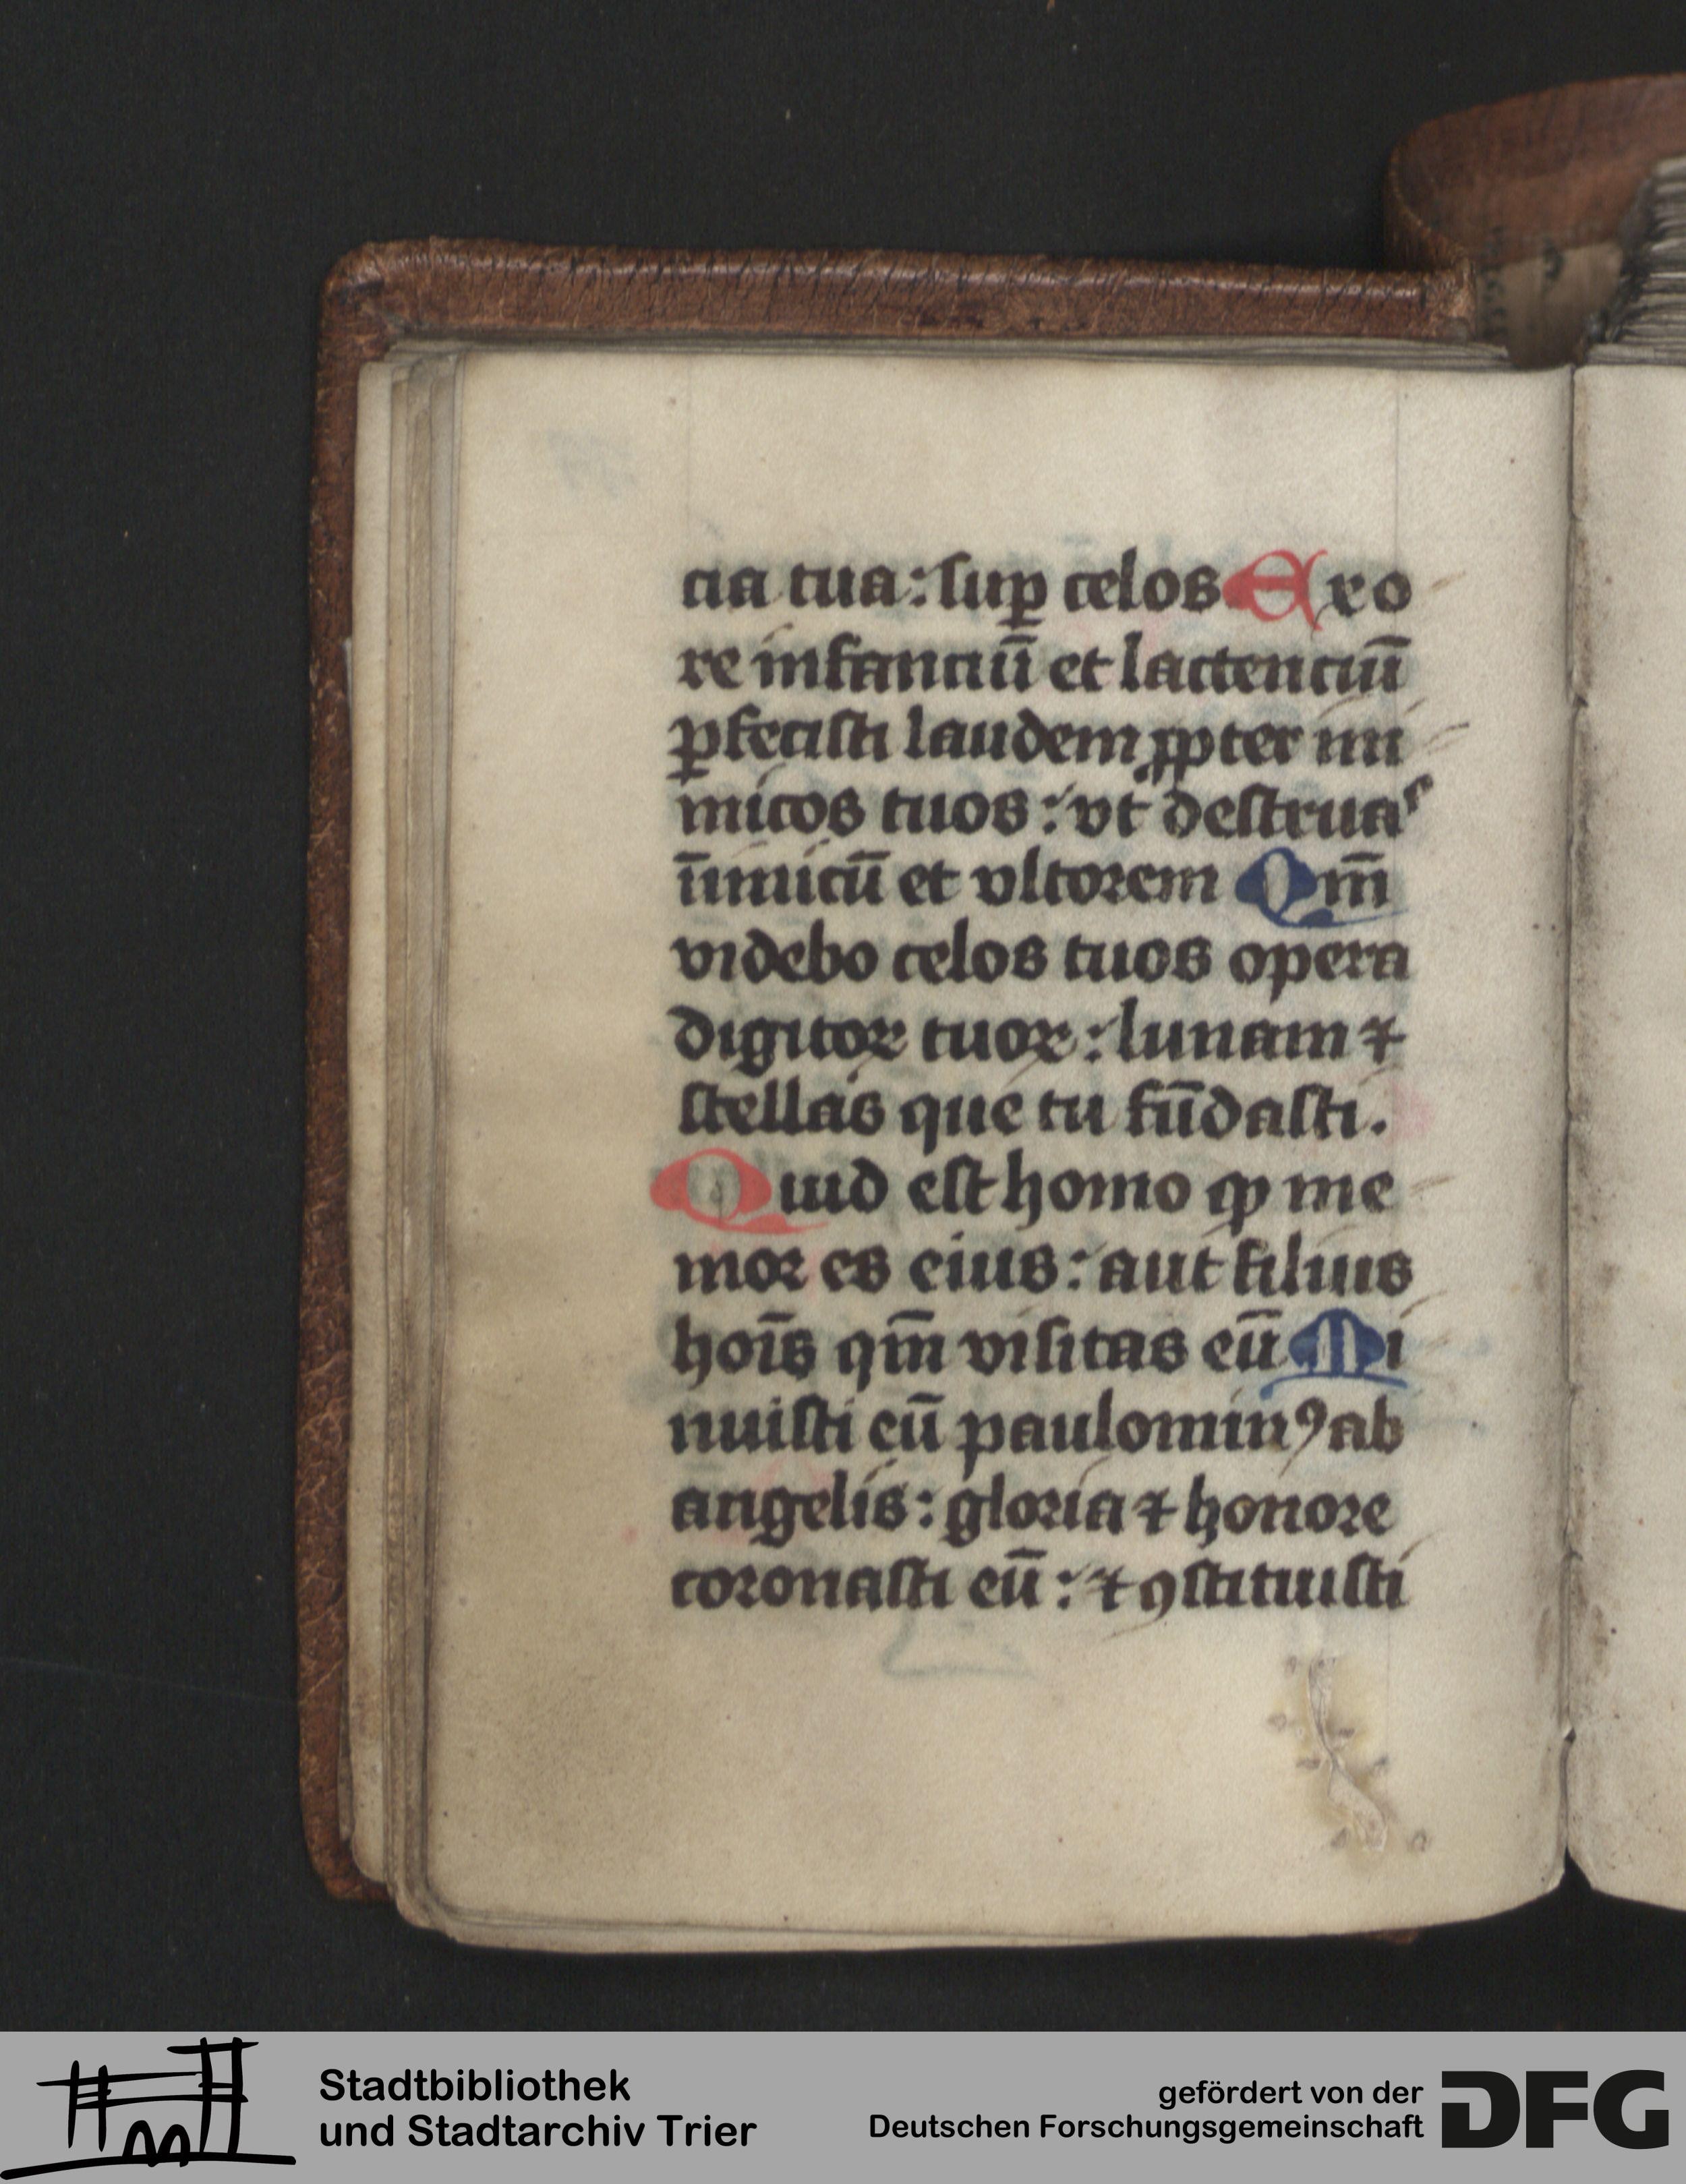 cia tua: sup̱ celos Exo
re infanciū et lactenciū
ꝑfecisti laudem ꝓpter ini
micos tuos: vt destruas
īimicū et vltorem Qm̄
videbo celos tuos opera
digitoꝝ tuoꝝ: lunam ⁊
stellas que tu fūdasti.
Quid est homo ꝙ me
mor es eius: aut filius
hoīs qm̄ visitas eū Mi
nuisti eū paulominꝰ ab
angelis: gloria ⁊ honore
coronasti eū: ⁊ ꝯstituisti
Stadtbibliothek
und Stadtarchiv Trier
gefördert von der
Deutschen Forschungsgemeinschaft
DFG